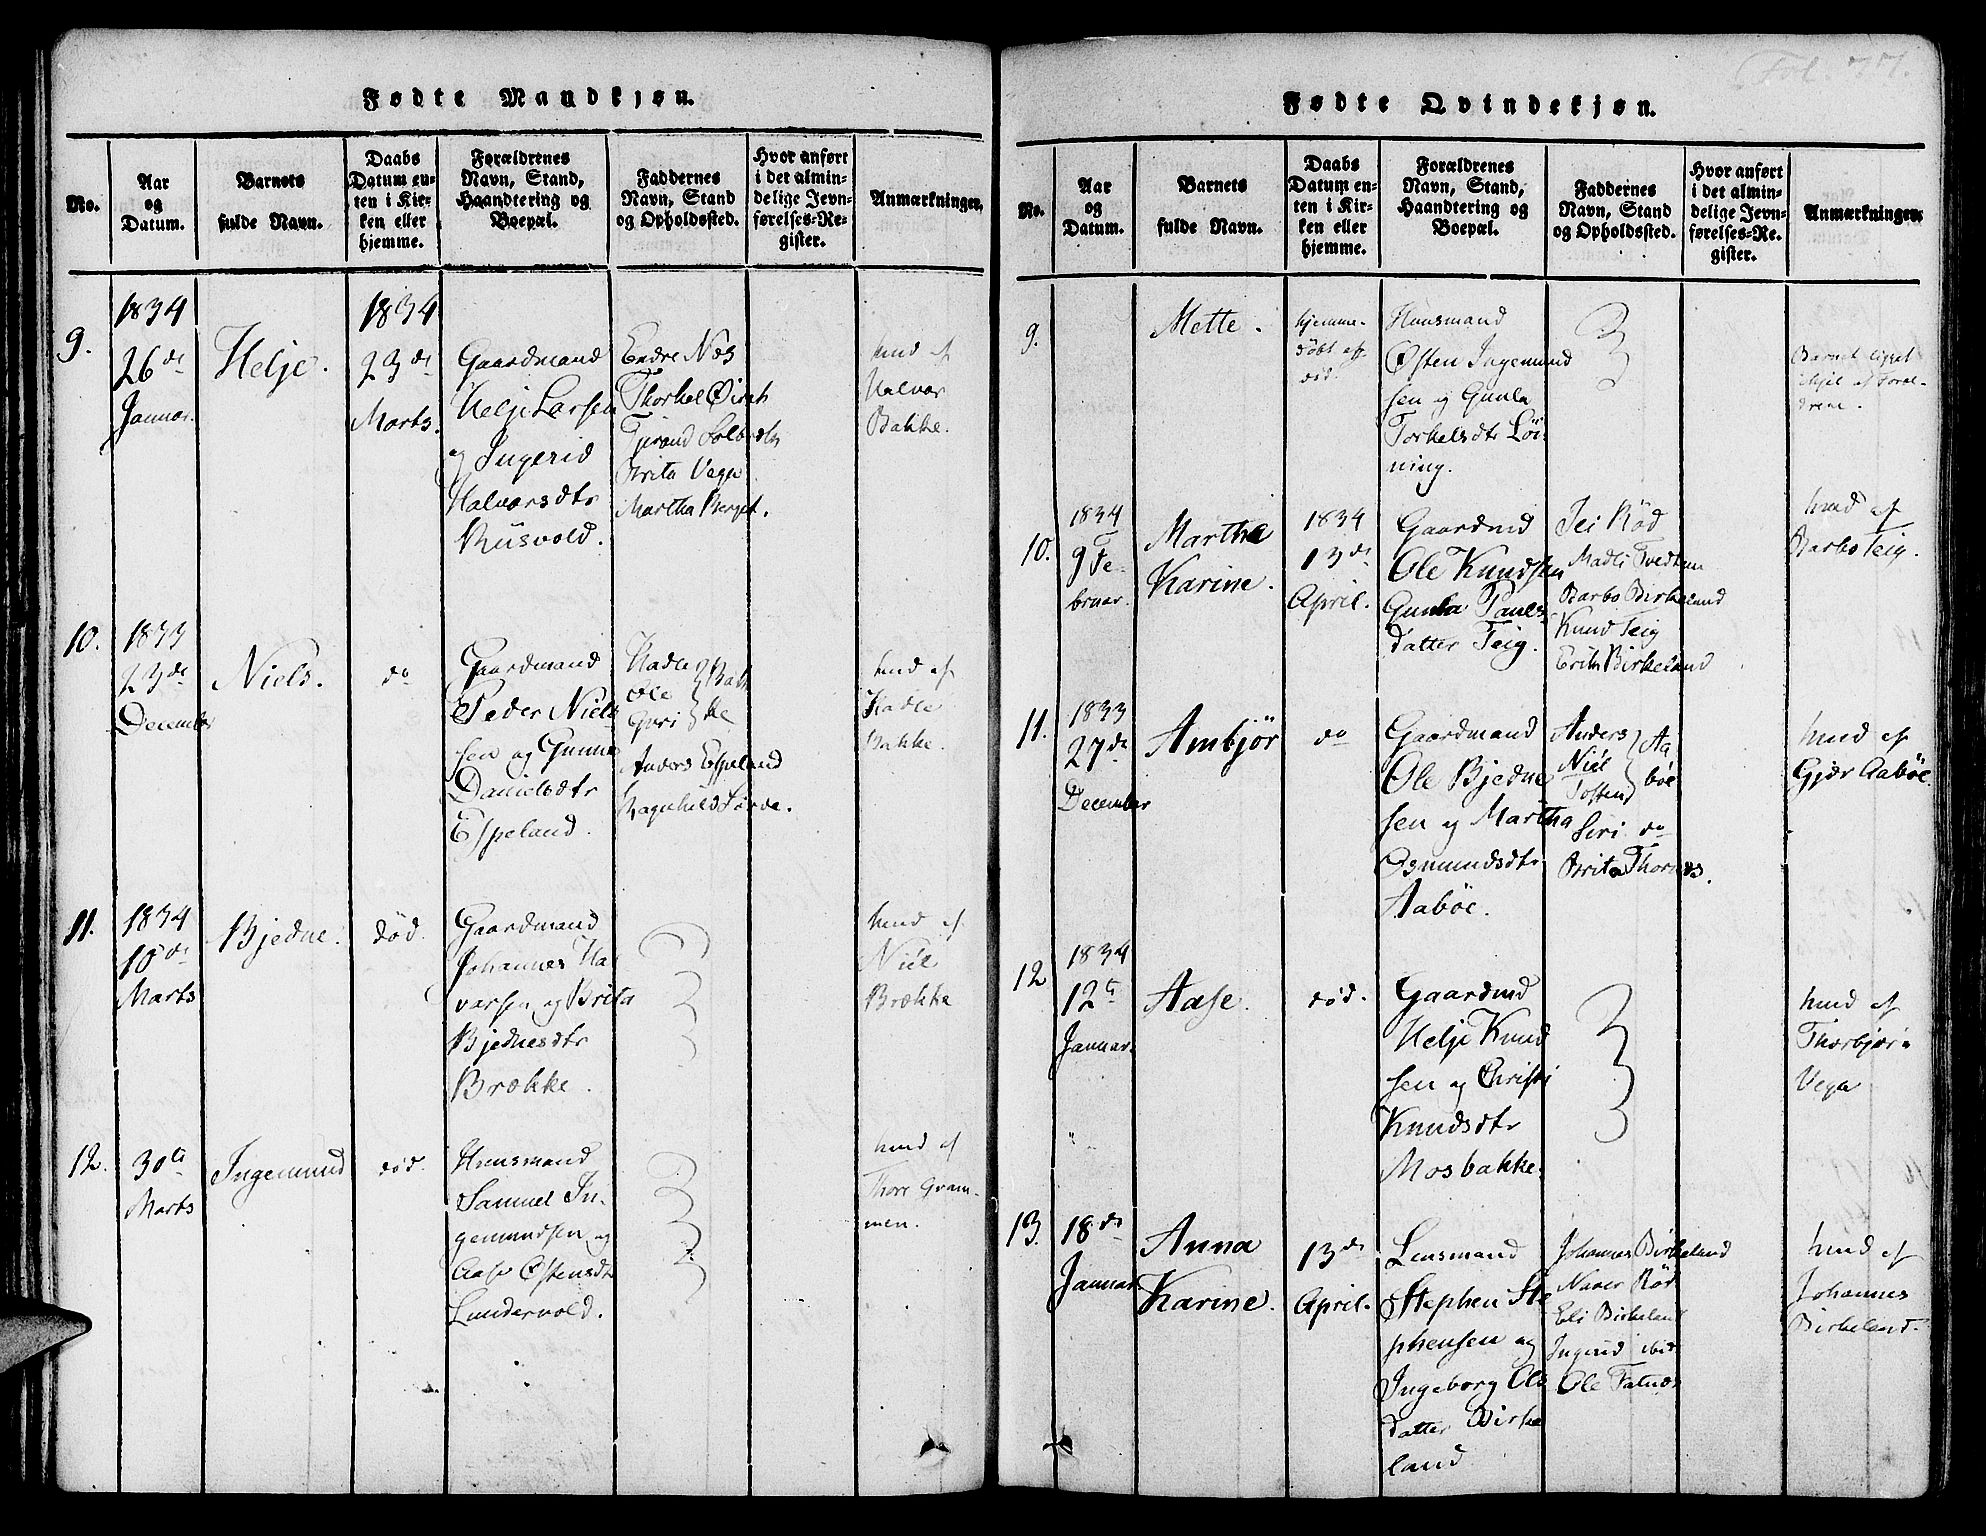 Fødte Mandkjøn.
No.
Aar
og
Datum.
Barnets
fulde Navn.
Daabs
Datum en-
ten i Kir-
ken eller
hjemme.
Forældrenes
Navn, Stand,
Haandtering og
Boepæl.
Faddernes
Navn, Stand
og Opholdssted.
Hvor anført
i det almin-
delige Jevn-
førelses-Re-
gister.
Anmærkninger.
9.
1834
26de
Januar.
Helje.
1834
23de
Marts.
Gaardmand
Helje Larsen
og Ingerid
Halvorsdtr
Riisvold.
Endre Nos
Thorkel
Tjerand
Brita Vega
Martha Berget.
hmd af
Halvor
Bakke.
10.
1833
23de
December
Niels.
do
Gaardmand
Peder Niel-
sen og Gunna
Danielsdtr
Espeland.
Hadle
Ole
Guri
Bak
ke
Anders Espeland
Ragnhild Førde.
hmd af
Hadle
Bakke.
11.
1834
10de
Marts
Bjedne.
død.
Gaardmand
Johannes Ha
varsen og Brita
Bjednesdtr
Brække.
hmd af
Niel
Brække
12.
30te
Marts
Ingemund
død.
Huusmand
Samuel In-
gemundsen og
Aase Østensdtr
Lundervold.
hmd af
Thore Gram-
men.
Fol. 77.
Fødte Qvindekjøn.
No.
Aar
og
Datum.
Barnets
fulde Navn.
Daabs
Datum en-
ten i Kir-
ken eller
hjemme.
Forældrenes
Navn, Stand,
Haandtering og
Boepæl.
Faddernes
Navn, Stand
og Opholdssted.
Hvor anført
i det almin-
delige Jevn-
førelses-Re-
gister.
Anmærkninger.
9.
Mette.
hjemme-
døbt og
død.
Huusmand
Østen Ingemund
sen og Gunla
Torkelsdtr Løi-
ning.
Barnet ligget
ihjel af Foræl-
drene.
10.
1834
9 Fe-
bruar.
Martha
Karine.
1834
13de
April.
Gaardmd
Ole Knudsen
Gunla Pauls
datter Teig.
Jei Rød
Madli Tvedten
Barbo Birkeland
Knud Teig
Erik Birkeland
hmd af
Barbo Teig.
11.
1833
27de
December
Ambjør
do
Gaardmand
Ole Bjedne
sen og Martha
Osmundsdtr
Aabøe.
Anders
Niel
Tosten
Aa
bøe
Siri do
Brita Thornes.
hmd af
Gjør Aabøe.
12
1834
12te
Januar.
Aase.
død.
Gaardmd
Helje Knud
sen og Christi
Knudsdtr
Mosbakke.
hmd af
Thorbjør
Vega
13.
18de
Januar
Anna
Karine.
13de
April.
Lensmand
Stephen Ste
phensen og
Ingeborg Ols
datter Birke
land
Johannes Birkeland
Naaer Rød
Eli Birkeland
Ingerid ibid
Ole Fatnes
hmd af
Johannes
Birkeland.